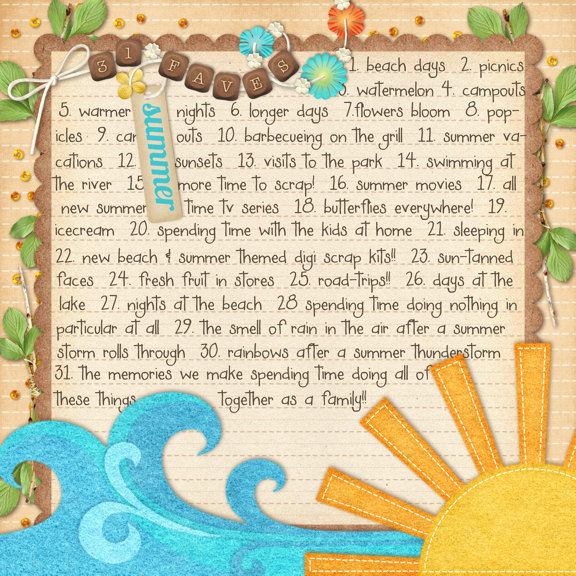 31 FAVES
summer
1. beach days 2. picnics
3. watermelon 4. campouts
5. warmer nights 6. longer days 7.flowers bloom 8. pop-
icles 9. outs 10. barbecueing on the grill 11. summer va-
cations 12 sunsets 13. visits to the park 14. swimming at
the river 15 more time to scrap! 16. summer movies 17. all
new summer time tv series 18. butterflies everywhere! 19.
icecream 20. spending time with the kids at home 21. sleeping in
22. new beach & summer themed digi scrap kits!! 23. sun-tanned
faces 24. fresh fruit in stores 25. road-trips!! 26. days at the
lake 27. nights at the beach 28 spending time doing nothing in
particular at all 29. the smell of rain in the air after a summer
storm rolls through 30. rainbows after a summer thunderstorm
31. the memories we make spending time doing all of
these things together as a family!!